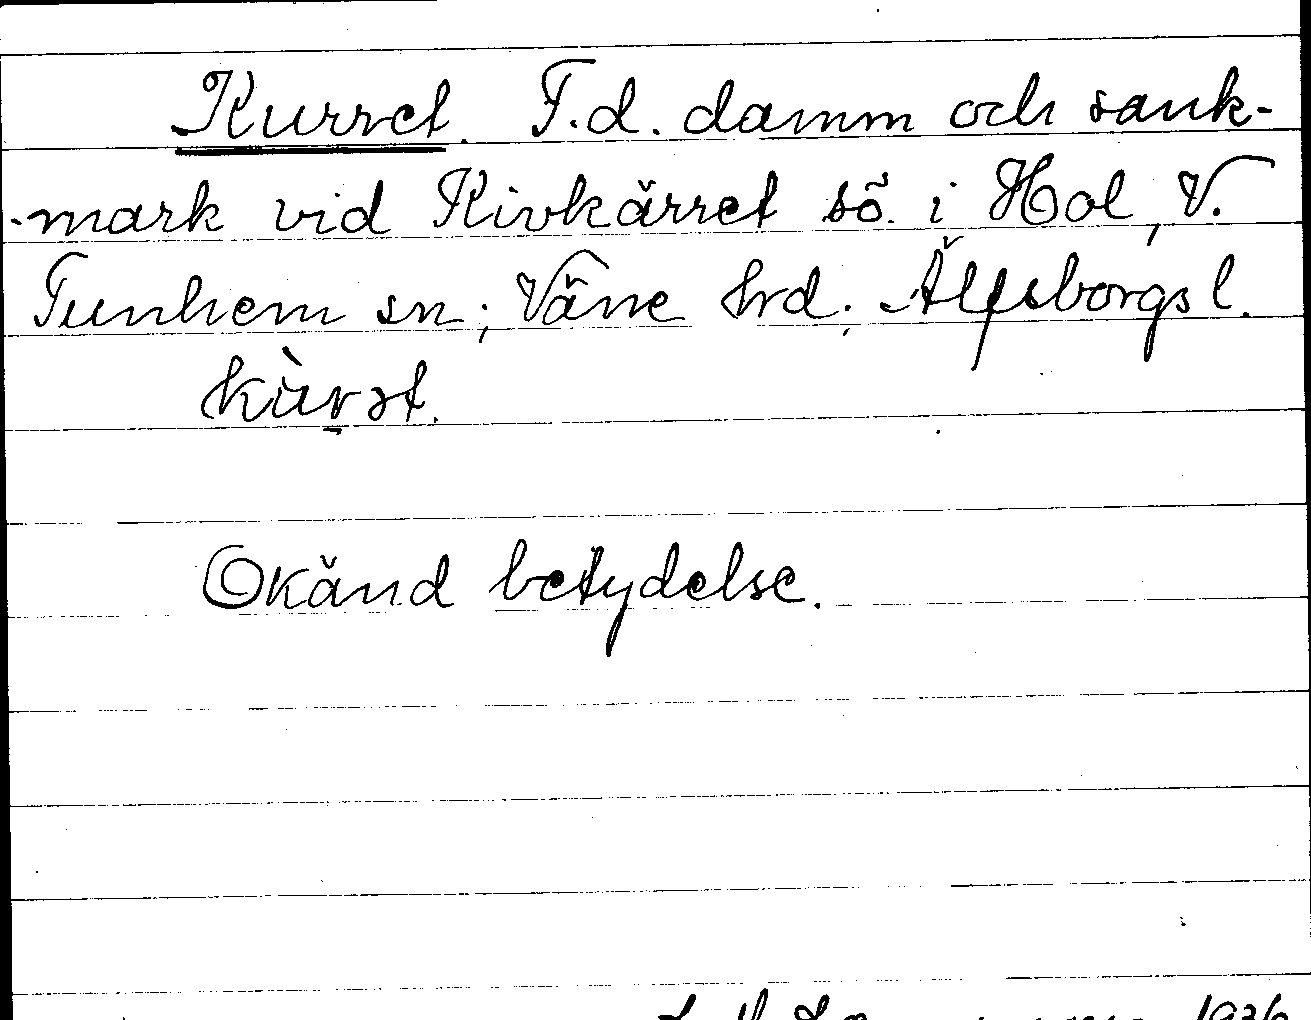 Kurret. F.d. damm och sank-
-mark vid Kivkärret sö. i Hol, V.
Tunhem sn; Väne hrd; Älfsborgs l.
kùrət.
Okänd betydelse.
1936